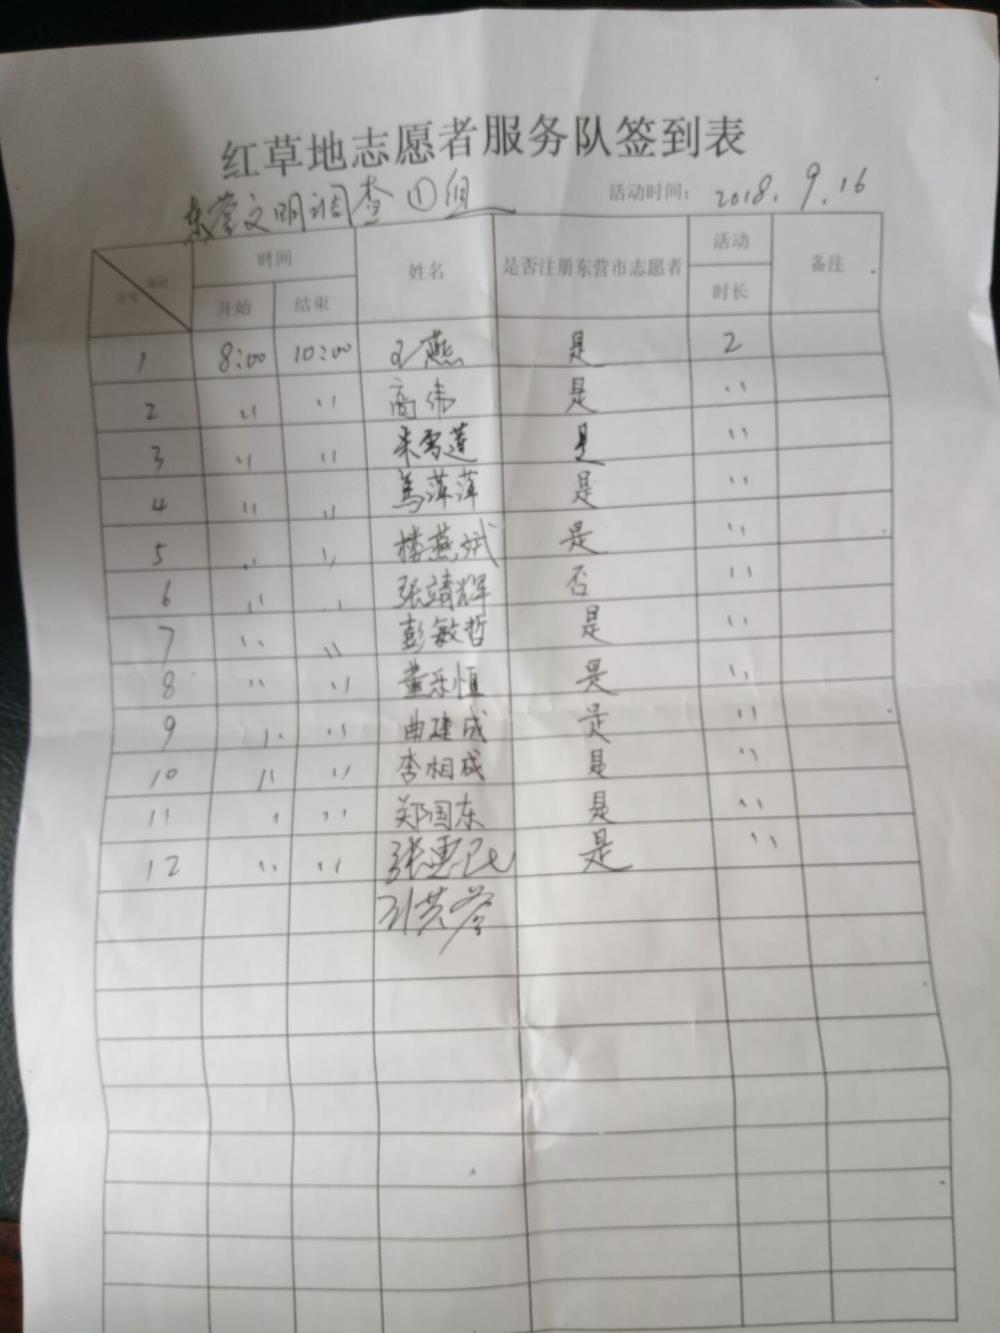 红草地志愿者服务队签到表
东营文明调查①组 活动时间: 2018.9.16
项目 时间 姓名 是否注册东营市志愿者 活动 备注
序号 开始 结束 时长
1 8:00 10:00 王燕 是 2
2 〃 〃 高伟 是 〃
3 〃 〃 朱雪莲 是 〃
4 〃 〃 萍萍 是 〃
5 〃 〃 楼燕斌 是 〃
6 〃 〃 张靖辉 否 〃
7 〃 〃 彭敏哲 是 〃
8 〃 〃 董乐恒 是 〃
9 〃 〃 曲建成 是 〃
10 〃 〃 李相成 是 〃
11 〃 〃 郑国东 是 〃
12 〃 〃 张惠民 是 〃